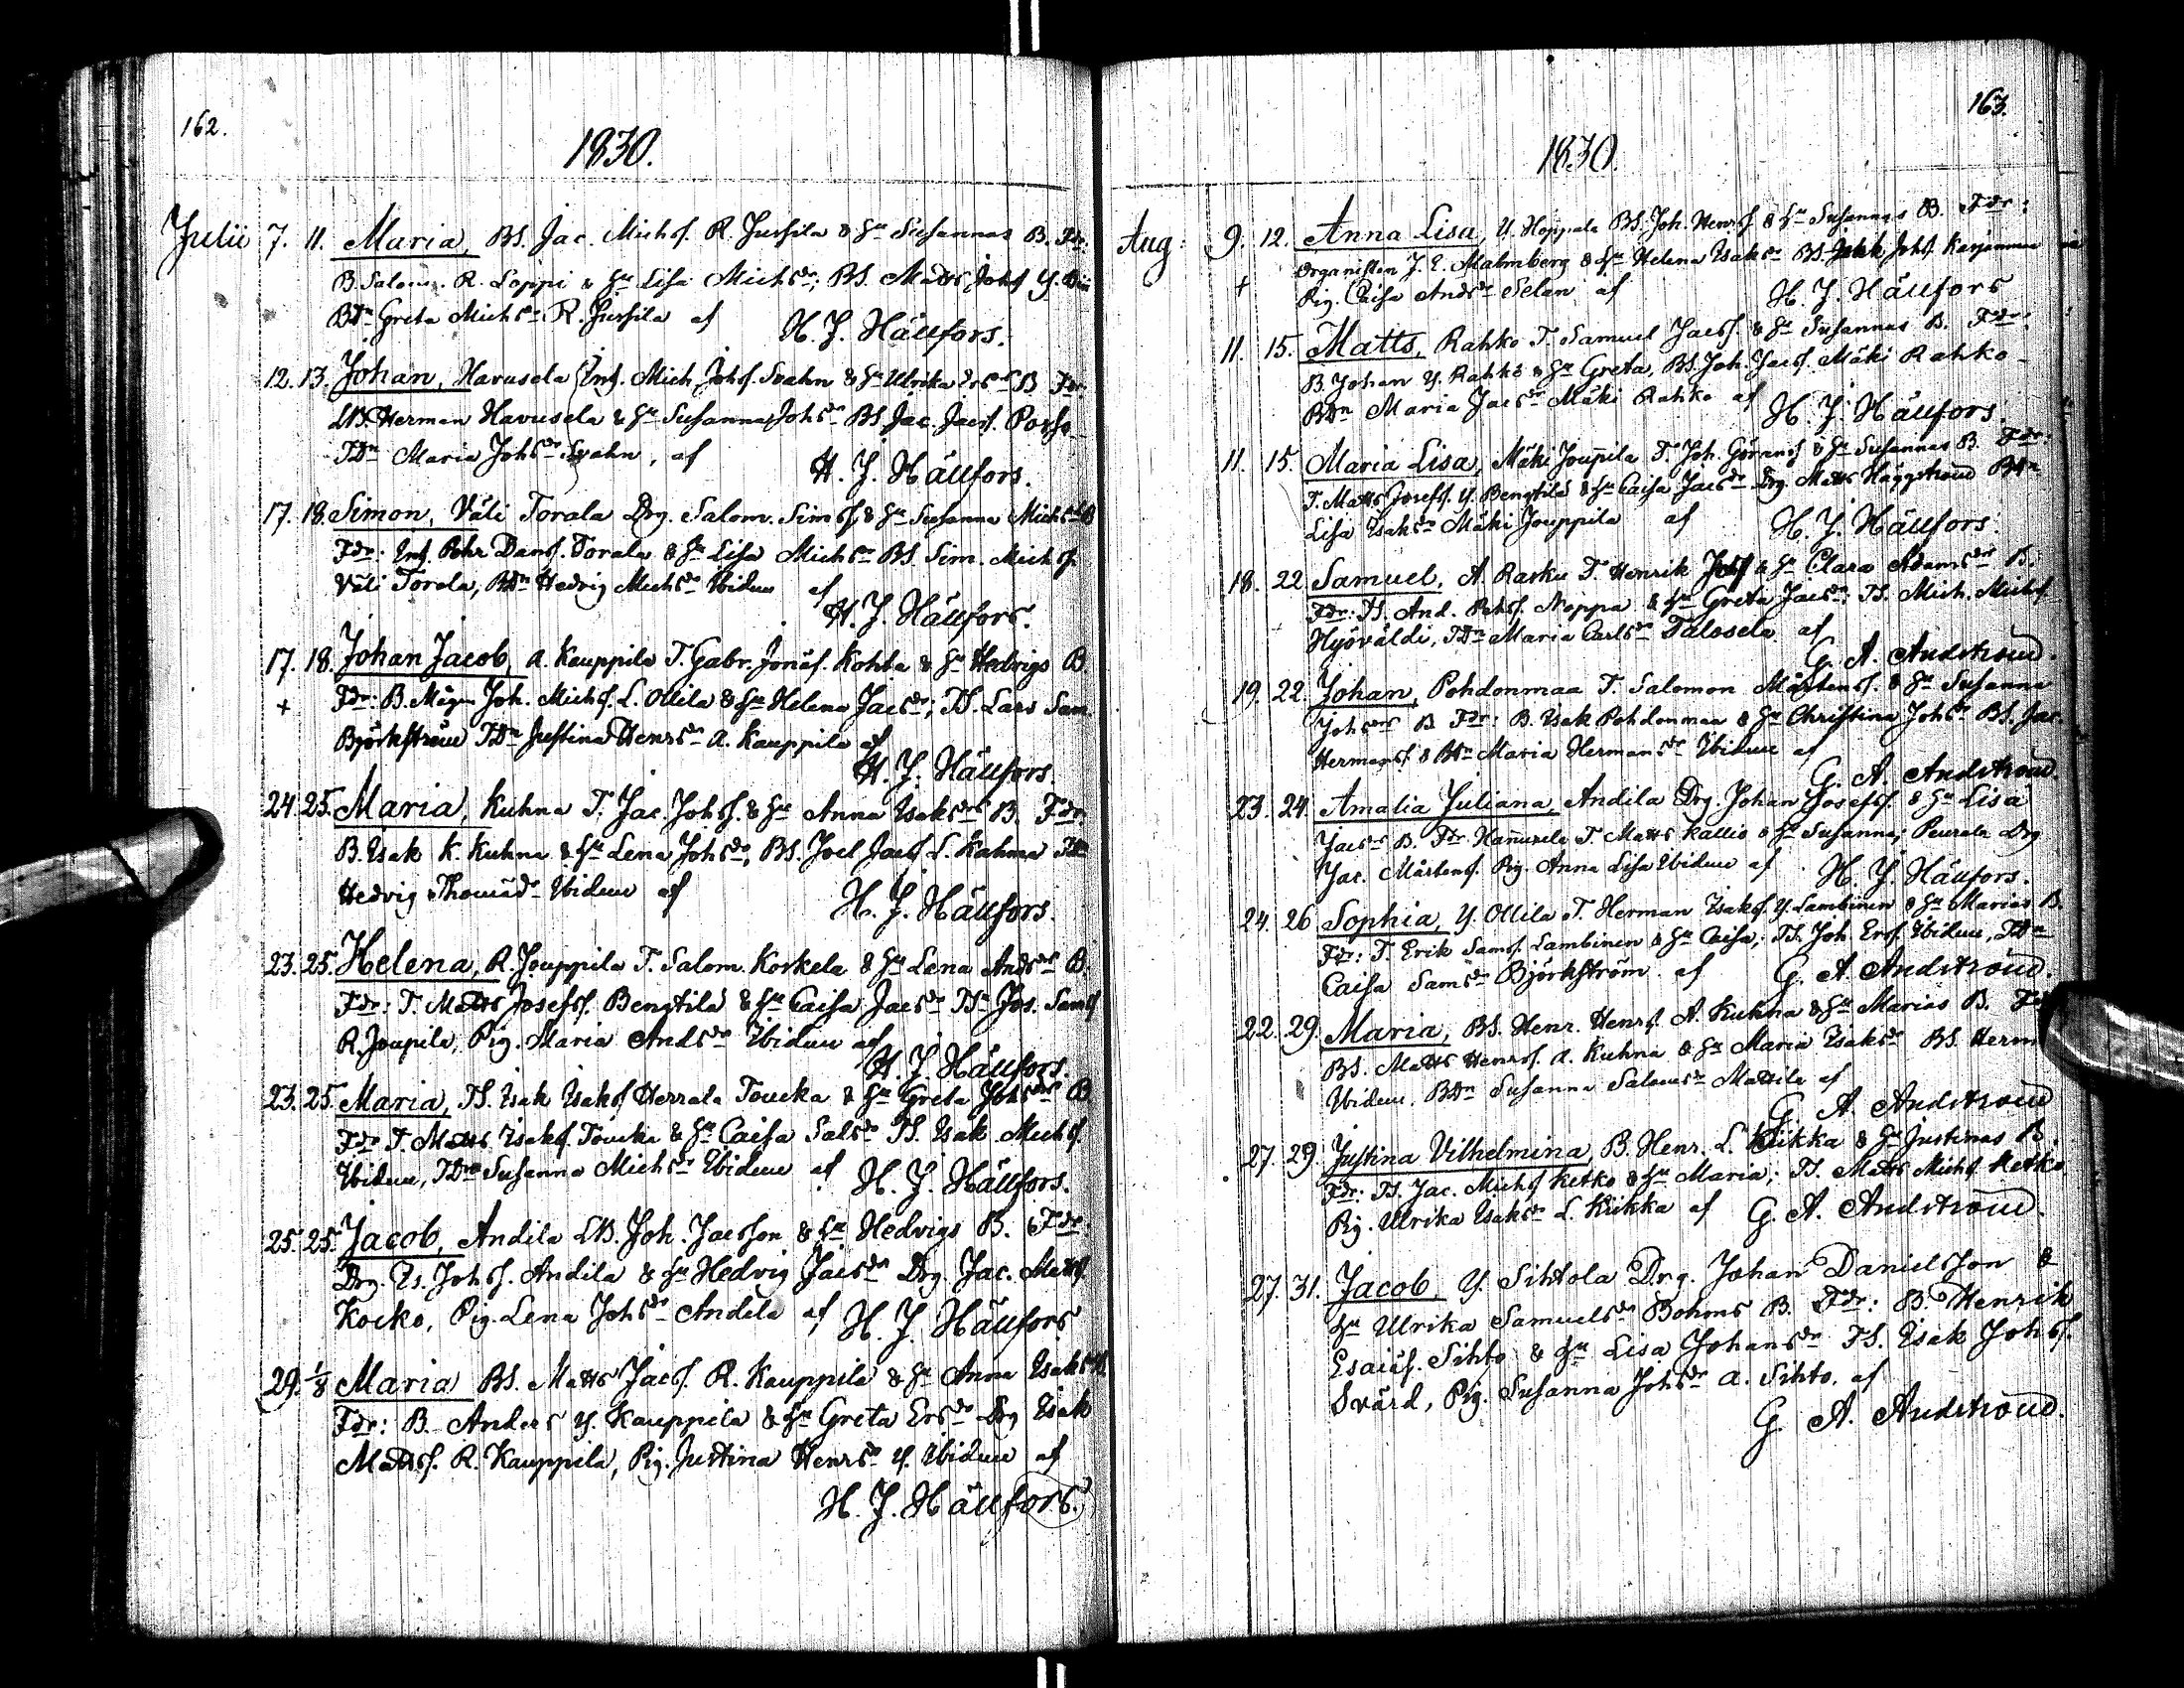 162.
1830.
Julii 7. 11. Maria, BS. Jac. Michs. R. Jussila & Hu Susannas B. Fdr:
B. Salom. R. Loppi & Hu Lisa Michsdr; BS. Matts Johs Y.
BDr Greta Michsdr R. Jussila af H. J. Hällfors.
12. 13. Johan, Havusela Inh. Mich. Johs. Svahn & Hu Ulrika Ersdrs B Fdr:
LB. Herman Havusela & Hu Susanna Johsdr BS. Jac. Jacs. Posso
TDr Maria Johsdr Svahn, af
H. J. Hällfors.
17. 18. Simon, Väli Torala Drg. Salom. Sims & Hu Susanna Michsdrs B
Fdr: Inh. Pehr Dans. Torala & Hu Lisa Michsdr BS. Sim. Michs.
Väli Torala, BDr Hedvig Michsdr Ibidem af
H. J. Hällfors.
17. 18. Johan Jacob, A. Kauppila T. Gabr. Jonäs. Kohta & Hu Hedvigs B
+ Fdr: B. Mågen Joh. Michs. L. Ollila & Hu Helena Jacsdr; TS. Lars Sam.
Björkström TDr Justina Henrsdr A. Kauppila af
H. J. Hällfors.
24. 25. Maria, Kuhna T. Jac. Johs. & Hu Anna Isaksdrs B. Fdr:
B. Isak K. Kuhna & Hu Lena Johsdr; BS. Joel Jacs. L. Kahma TDr
Hedvig Thomasdr Ibidem af H. J. Hällfors.
23. 25. Helena, R. Jouppila T. Salom. Korkela & Hu Lena Andsdrs B.
Fdr: T. Matts Josefs. Bengtilä & Hu Caisa Jacsdr TSn Jos. Sams
R. Joupila, Pig. Maria Andsdr Ibidem af
H. J. Hällfors.
23. 25. Maria, TS. Isak Isaks Herrala Toucka & Hu Greta Johsdrs B
Fdr T. Matts Isaks. Toucka & Hu Caisa Salsdr TS. Isak Michs.
Ibidem, TDr Susanna Michsdr Ibidem af H. J. Hällfors.
25. 25. Jacob, Andila LB. Joh. Jacsson & Hu Hedvigs B. Fdr:
Drg. Is. Johs. Andila & Hu Hedvig Jacsdr Drg. Jac. Matts.
Kocko, Pig. Lena Johsdr Andila af H. J. Hällfors
29. 1/8 Maria BS. Matts Jacs. R. Kauppila & Hu Anna Isaksdrs B.
Fdr: B. Anders Y. Kauppila & Hu Greta Ersdr Drg Isak
Mattss. R. Kauppila, Pig. Justina Henrsdr Y. Ibidem af
H. J. Hällfors.
163.
1830.
Aug: 9. 12. Anna Lisa, Y. Hoppala BS. Joh. Henrs & Hu Susannas B. Fdr:
Organisten J. E. Malmberg & Hu Helena Isaksdr BS. Johs. Karjanmaa
+ Pig. Caisa Andsdr Selan af H. J. Hällfors
11. 15. Matts, Rahko T. Samuel Jacss. & Hu Susannas B. Fdr:
B. Johan Y. Rahko & Hu Greta, BS. Joh. Jacs. Mäki Rahko
BDr Maria Jacsdr Mäki Rahko af H. J. Hällfors.
11. 15. Maria Lisa, Mäki Joupila T. Joh. Görans & Hu Susannas B. Fdr:
T. Matts Josefs. Y. Bengtilä & Hu Caisa Jacsdr Drg. Matts Häggström BDr
Lisa Isaksdr Mäki Jouppila af H. J. Hällfors.
18. 22. Samuel, A. Rasku T. Henrik & Hu Clara Adamsdrs B.
Fdr: TS. And. Pehs. Noppa & Hu Greta Jacsdr; TS. Mich. Michs.
Hyöväldi, TDr Maria Carlsdr Talosela af
G. A. Andström.
19. 22. Johan, Pohdonmaa T. Salomon Mårtens. & Hu Susanna
Johsdrs B Fdr: B. Isak Pohdonmaa & Hu Christina Johsdr BS. Jac.
Hermans. & BDr Maria Hermansdr Ibidem af
G. A. Andström.
23. 24. Amalia Juliana, Andila Drg. Johan Josefs. & Hu Lisa
Jacsdrs B. Fdr Hannusela T. Matts Kallio & Hu Susanna; Peurala Drg
Jac. Mårtens. Pig. Anna Lisa Ibidem af H. J. Hällfors.
24. 26 Sophia, Y. Ollila T. Herman Isaks. Y. Lambinen & Hu Marias B.
Fdr: T. Erik Sams. Lambinen & Hu Caisa; TS. Joh. Ers. Ibidem, TDr
Caisa Samsdr Björkström. af G. A. Andström.
22. 29. Maria, BS. Henr. Henrs. A. Kuhna & Hu Marias B. Fdr
BS. Matts Henrs. A. Kuhna & Hu Maria Isaksdr BS. Herm
Ibidem. BDr Susanna Salomsdr Mattila af
G. A. Andström
27. 29. Justina Vilhelmina, B. Henr. L. Kiikka & Hu Justinas B
Fdr: TS. Jac. Michs Ketko & Hu Maria; TS. Matts Michs. Ketko,
Pig. Ulrika Isaksdr L. Kiikka af G. A. Andström.
27. 31. Jacob, Y. Sihtola Drg. Johan Danielsson &
Hu Ulrika Samuelsdr Bohms B. Fdr: B. Henrik
Esaiäs. Sihto & Hu Lisa Johansdr TS. Isak Johss.
Svärd, Pig. Susanna Johsdr A. Sihto. af
G. A. Andström.